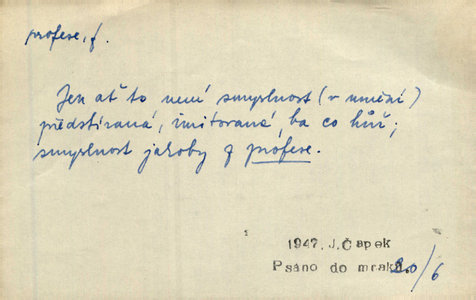 profese, f.
Jen ať to není smyslnost (v umění)
předstíraná, imitovaná, ba co hůř;
smyslnost jakoby z profese.
1947, J. Čapek
Psáno do mraků 20/6